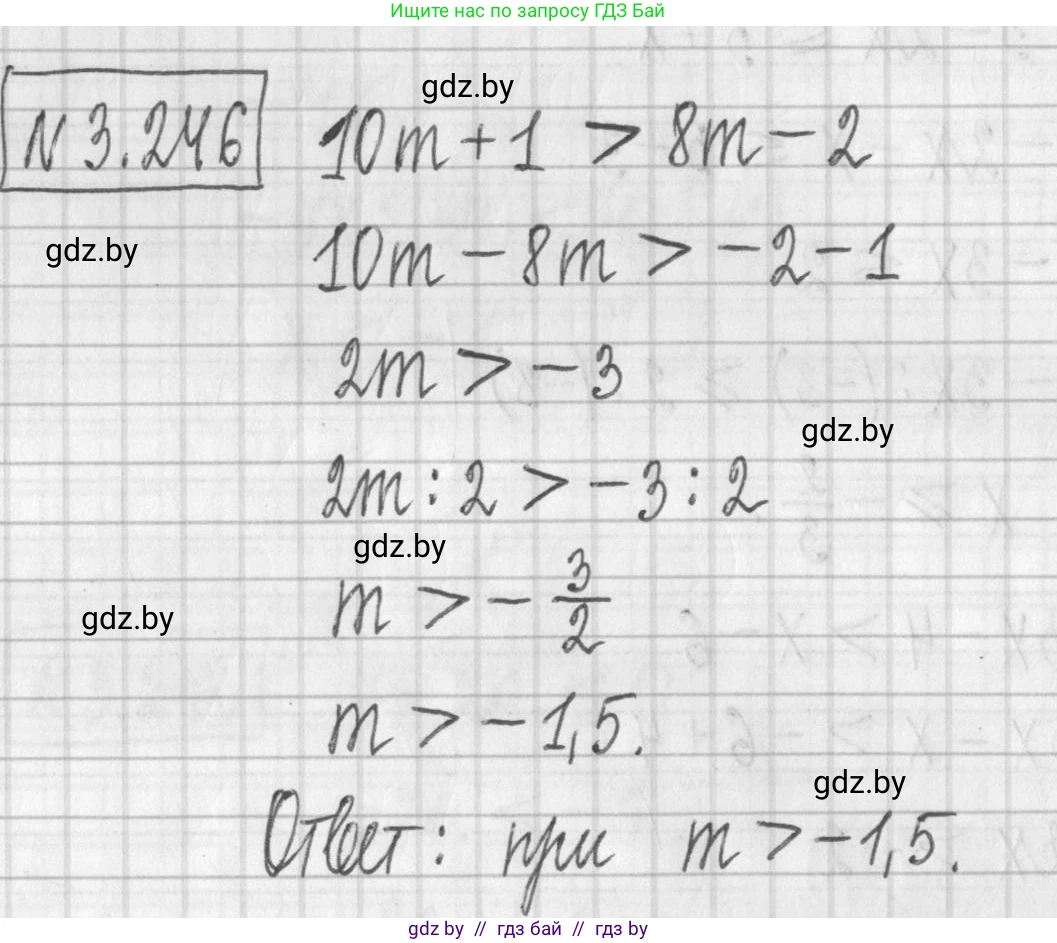 Ищите нас по запросу ГДЗ Бай
gdz.by
N 3.246 10m + 1 > 8m - 2
gdz.by
10m - 8m > -2 - 1
2m > -3
gdz.by
2m : 2 > -3 : 2
gdz.by
m > - 3/2
gdz.by
m > -1,5.
gdz.by
Ответ: при m > -1,5.
gdz by // гдз бай // гдз by